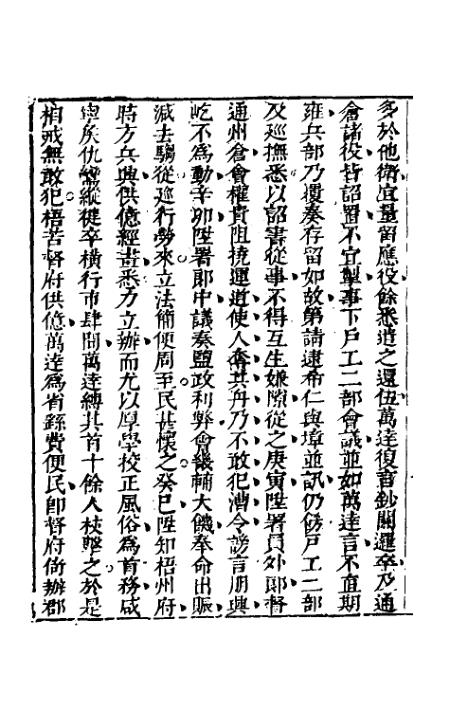 多於他衛宜量留應役餘悉遣之還伍萬逹復言鈔關邏卒及通
倉諸役皆詔置不宜掣事下戶工二部會議並如萬逹言不直期
雍兵部乃覆奏存留如故第請逮希仁與埠並訊仍飭戶工二部
及廵撫悉以詔書從事不得互生嫌隙從之庚寅陞署員外郎督
通州倉會權貴阻撓運道使人奪其舟乃不敢犯漕令謗言朋興
屹不為動辛卯陞署郎中議奏鹽政利弊會畿輔大饑奉命出賑
減去騶從廵行勞來立法簡便周至民甚懷之癸巳陞知梧州府
時方兵興供億經畫悉力立辦而尤以厚學校正風俗為首務咸
寧矦仇鸞縱徤卒橫行市肆間萬逹縛其首十餘人杖擊之於是
相戒無敢犯梧苦督府供億萬逹為省繇費便民卽督府倚辦郡